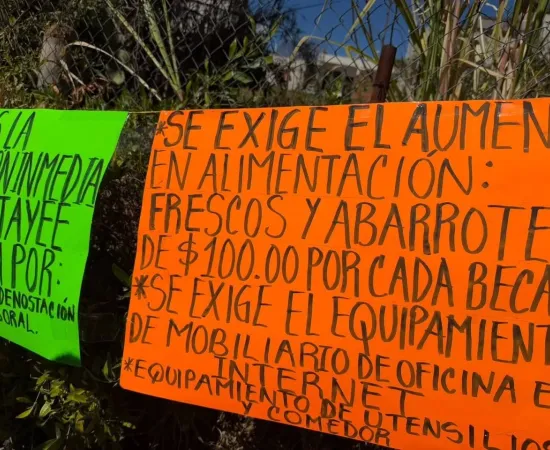 S LA
N INMEDIA
TAYEE
A POR:
DENOSTACIÓN
ORAL.
*SE EXIGE EL AUMEN
EN ALIMENTACIÓN:
FRESCOS Y ABARROTE
DE $100.00 POR CADA BECA
*SE EXIGE EL EQUIPAMIENT
DE MOBILIARIO DE OFICINA E
INTERNET
*EQUIPAMIENTO DE UTENSILIOS
Y COMEDOR